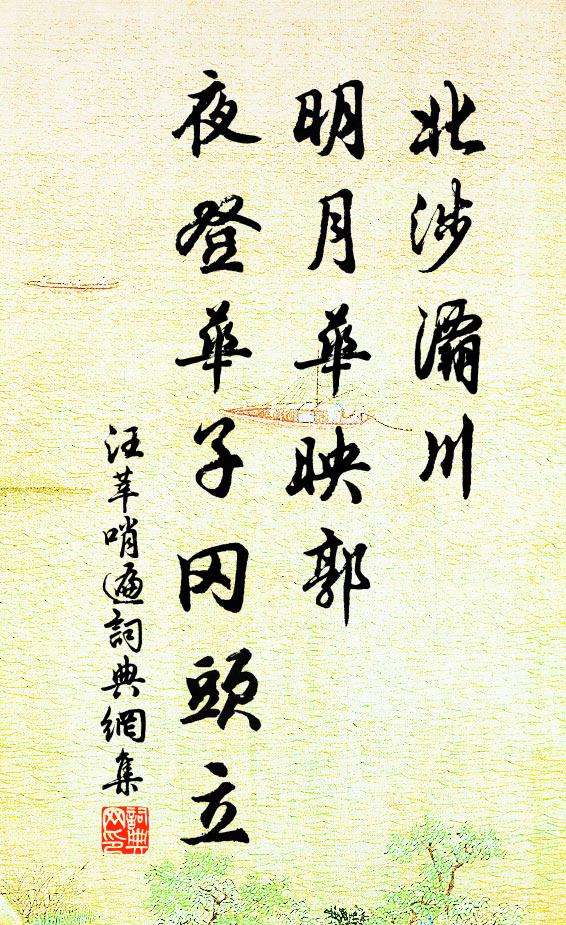 北涉灞川
明月華映郭
夜登華子冈頭立
汪莘哨遍詞典網集
詞典网印